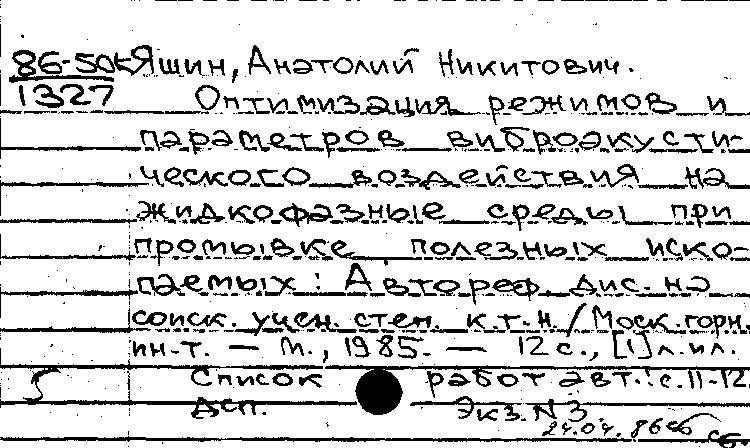 86-50к Яшин, Анатолий Никитович.
1327 Оптимизация режимов и
параметров виброакусти-
ческого воздействия на
жидкофазные среды при
промывке полезных иско-
паемых: Автореф. дис. на
соиск. учен. степ. к.т.н. / Моск. горн.
ин-т. — М., 1985. — 12 с., [1] л. ил.
Список работ авт.: с. 11-12
Дсп. Экз. N 3
24.04.86